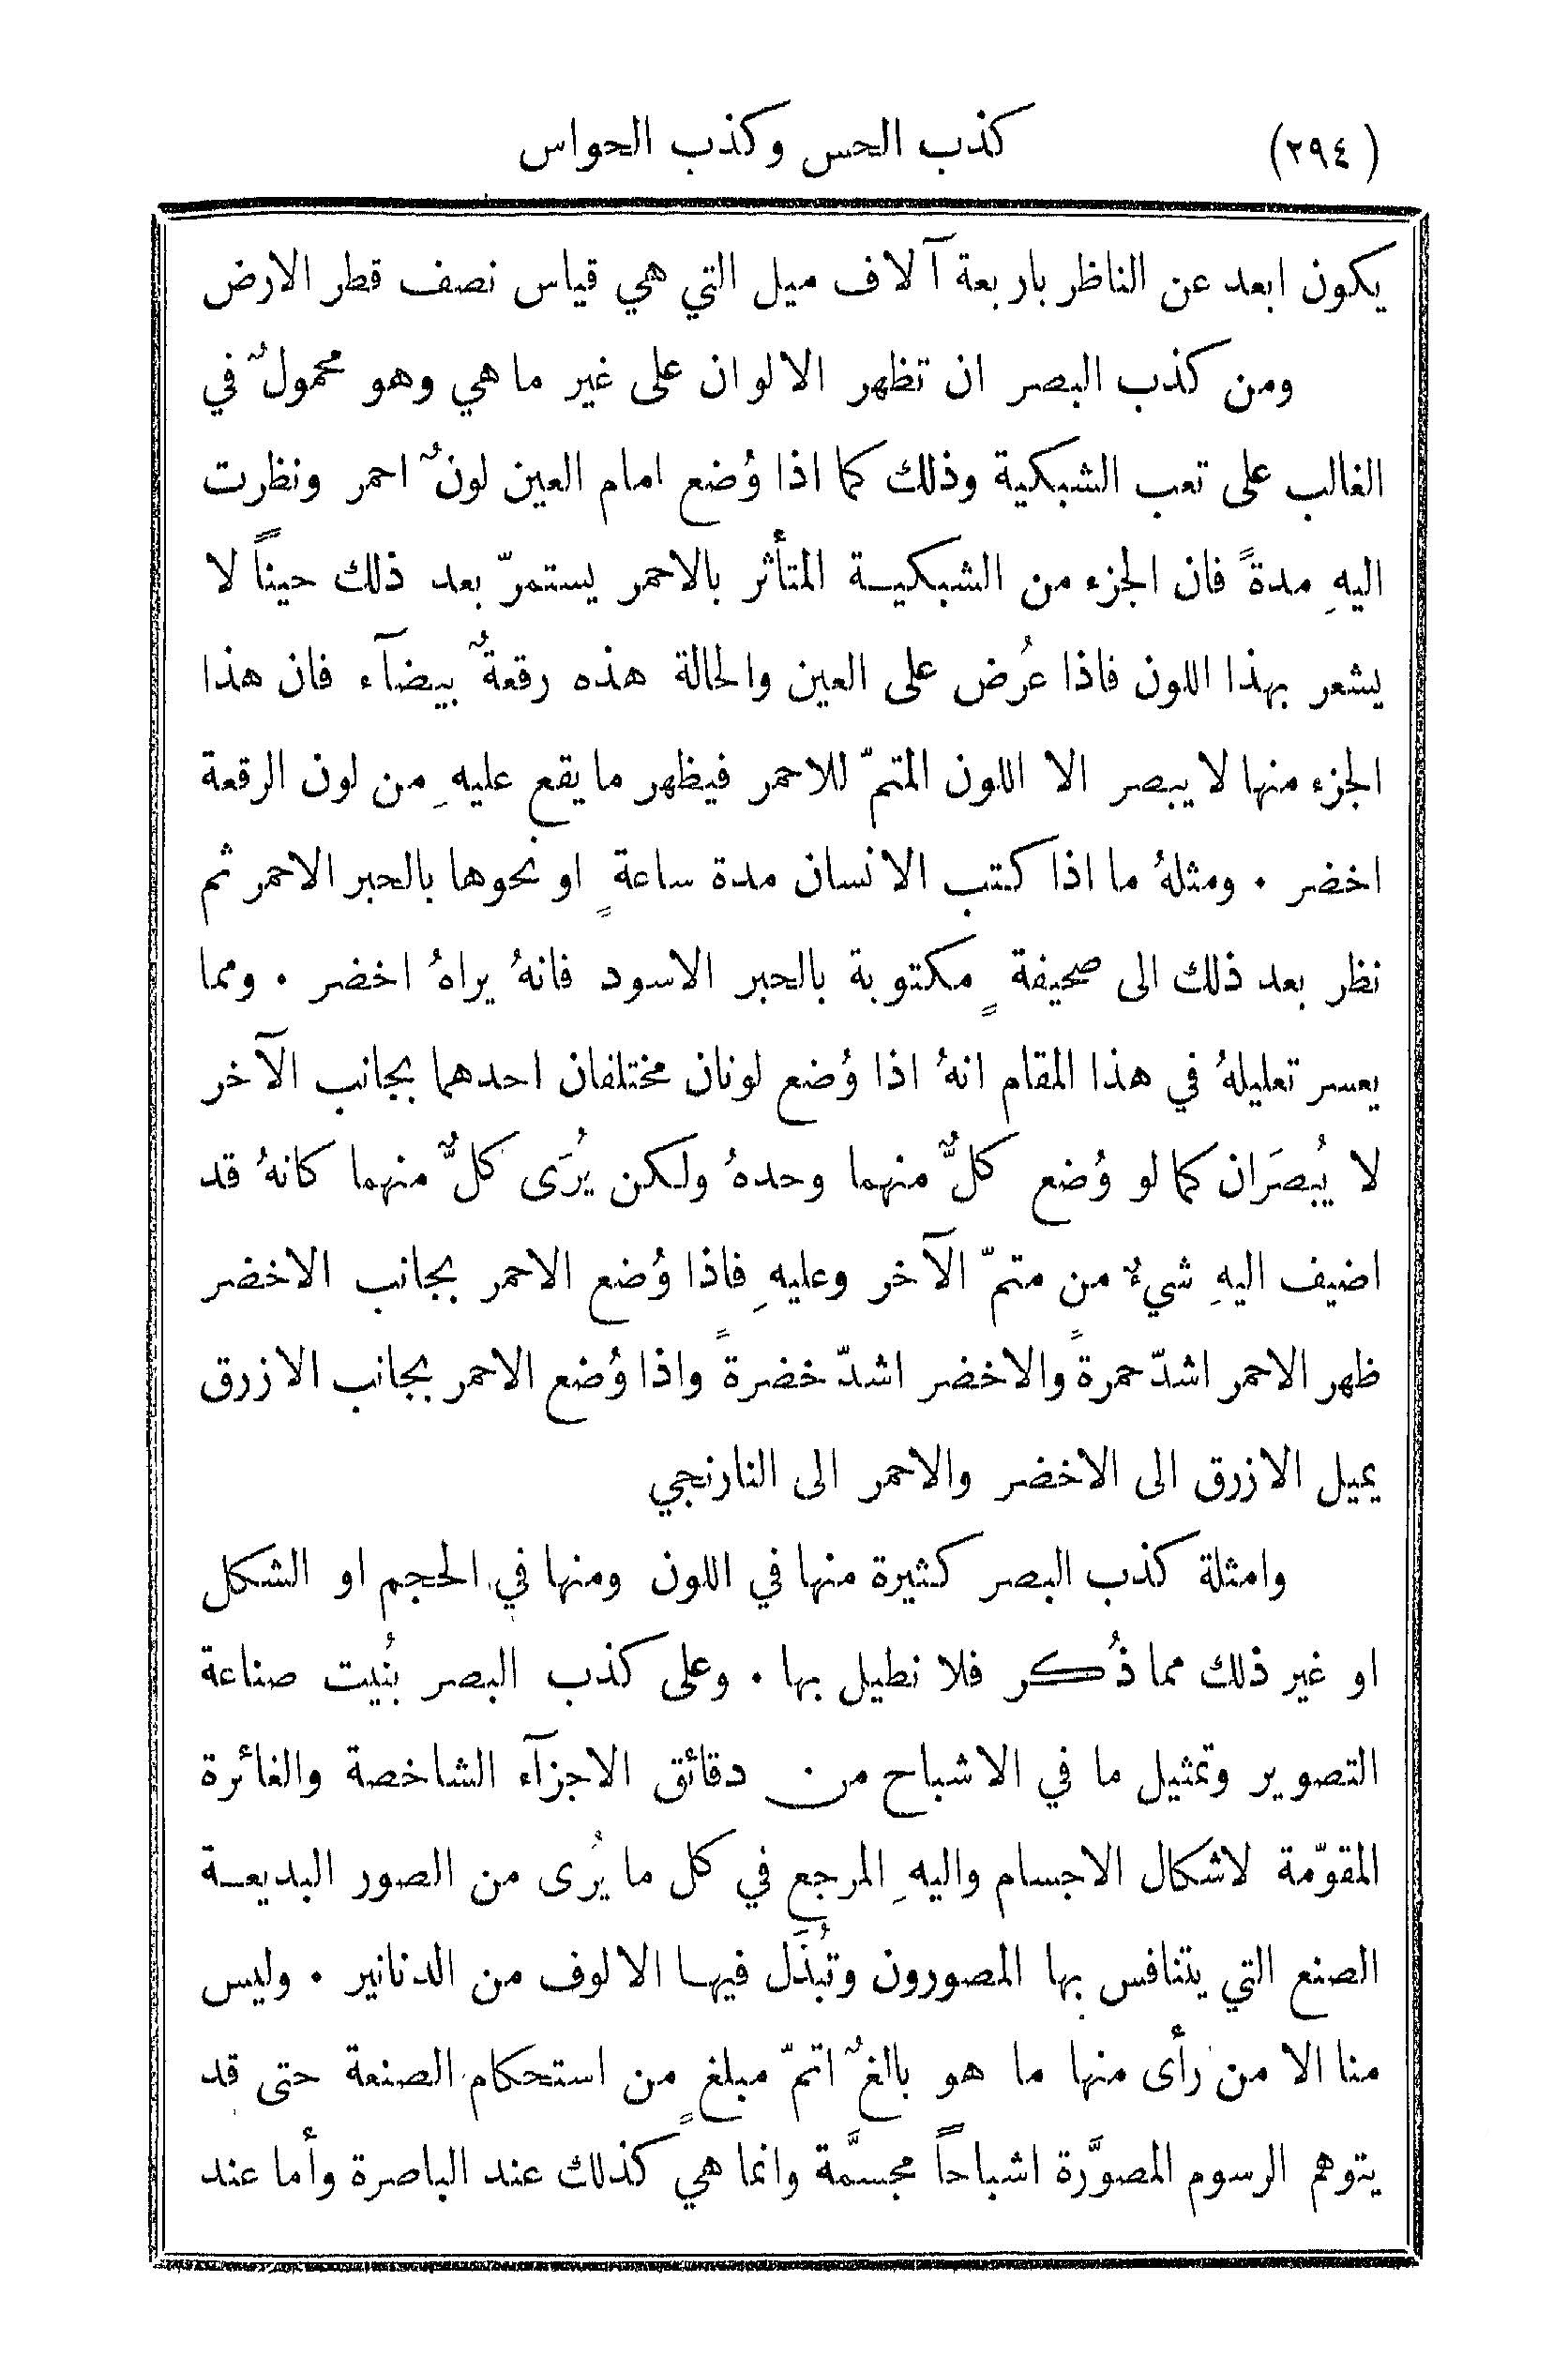 (٢٩٤) كذب الحس وكذب الحواس
يكون ابعد عن الناظر باربعة آلاف ميل التي هي قياس نصف قطر الارض
ومن كذب البصر ان تظهر الالوان على غير ما هي وهو محمولٌ في
الغالب على تعب الشبكية وذلك كما اذا وُضع امام العين لونٌ احمر ونظرت
اليهِ مدةً فان الجزء من الشبكيـة المتأثر بالاحمر يستمرّ بعد ذلك حيناً لا
يشعر بهذا اللون فاذا عُرض على العين والحالة هذه رقعةٌ بيضآء فان هذا
الجزء منها لا يبصر الا اللون المتمّ للاحمر فيظهر ما يقع عليهِ من لون الرقعة
اخضر . ومثلهُ ما اذا كتب الانسان مدة ساعةٍ او نحوها بالحبر الاحمر ثم
نظر بعد ذلك الى صحيفةٍ مكتوبة بالحبر الاسود فانهُ يراهُ اخضر . ومما
يعسر تعليلهُ في هذا المقام انهُ اذا وُضع لونان مختلفان احدهما بجانب الآخر
لا يُبصَران كما لو وُضع كلٌّ منهما وحدهُ ولكن يُرَى كلٌّ منهما كانهُ قد
اضيف اليهِ شيءٌ من متمّ الآخر وعليهِ فاذا وُضع الاحمر بجانب الاخضر
ظهر الاحمر اشدّ حمرةً والاخضر اشدّ خضرةً واذا وُضع الاحمر بجانب الازرق
يميل الازرق الى الاخضر والاحمر الى النارنجي
وامثلة كذب البصر كثيرة منها في اللون ومنها في الحجم او الشكل
او غير ذلك مما ذُكر فلا نطيل بها . وعلى كذب البصر بُنيت صناعة
التصوير وتمثيل ما في الاشباح من دقائق الاجزآء الشاخصة والغائرة
المقوّمة لاشكال الاجسام واليهِ المرجع في كل ما يُرى من الصور البديعـة
الصنع التي يتنافس بها المصورون وتُبذَل فيهـا الالوف من الدنانير . وليس
منا الا من رأى منها ما هو بالغٌ اتمّ مبلغٍ من استحكام الصنعة حتى قد
يتوهم الرسوم المصوَّرة اشباحاً مجسمَّة وانما هي كذلك عند الباصرة وأما عند